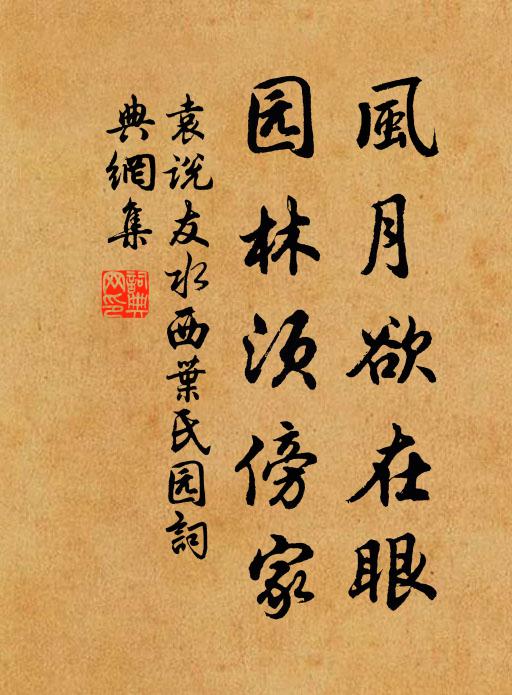 風月欲在眼
园林须傍家
袁说友水西葉氏园詞
典網集
詞典
网印